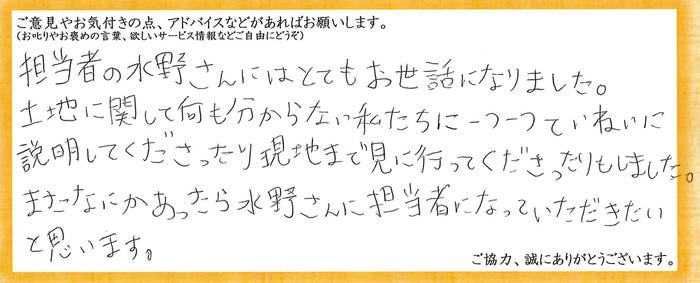 ご意見やお気付きの点、アドバイスなどがあればお願いします。
(お叱りやお褒めの言葉、欲しいサービス情報などご自由にどうぞ)
担当者の水野さんにはとてもお世話になりました。
土地に関して何も分からない私たちに一つ一つていねいに
説明してくださったり現地まで見に行ってくださったりもしました。
またなにかあったら水野さんに担当者になっていただきたい
と思います。
ご協力、誠にありがとうございます。